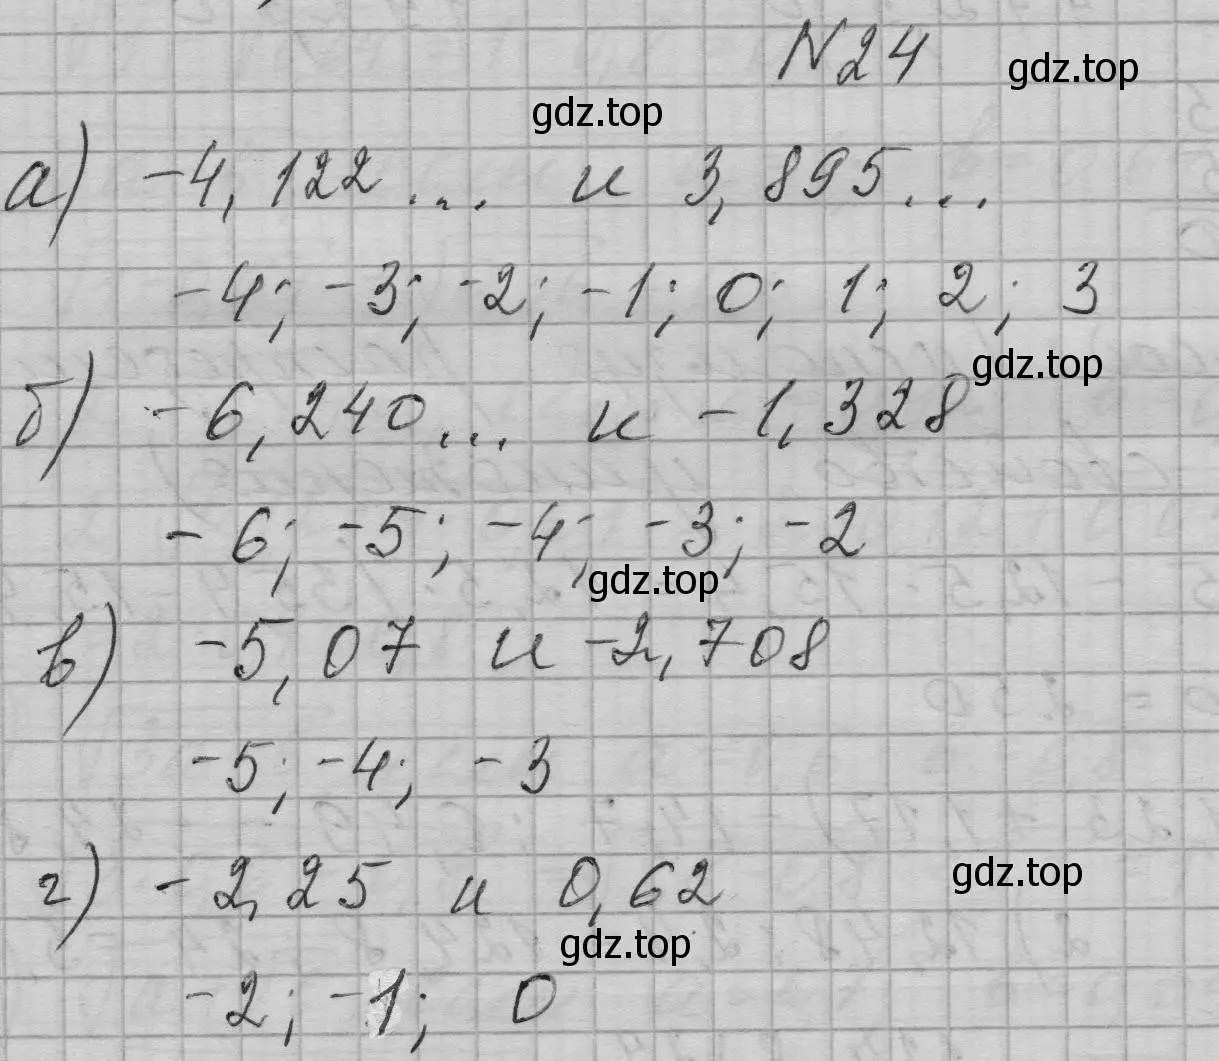 №24 gdz.top
gdz.top
а) -4,122... и 3,895...
-4; -3; -2; -1; 0; 1; 2; 3
gdz.top
б) -6,240... и -1,328
-6; -5; -4; -3; -2
gdz.top
в) -5,07 и -2,708
-5; -4; -3
г) -2,25 и 0,62 gdz.top
gdz.top
-2; -1; 0